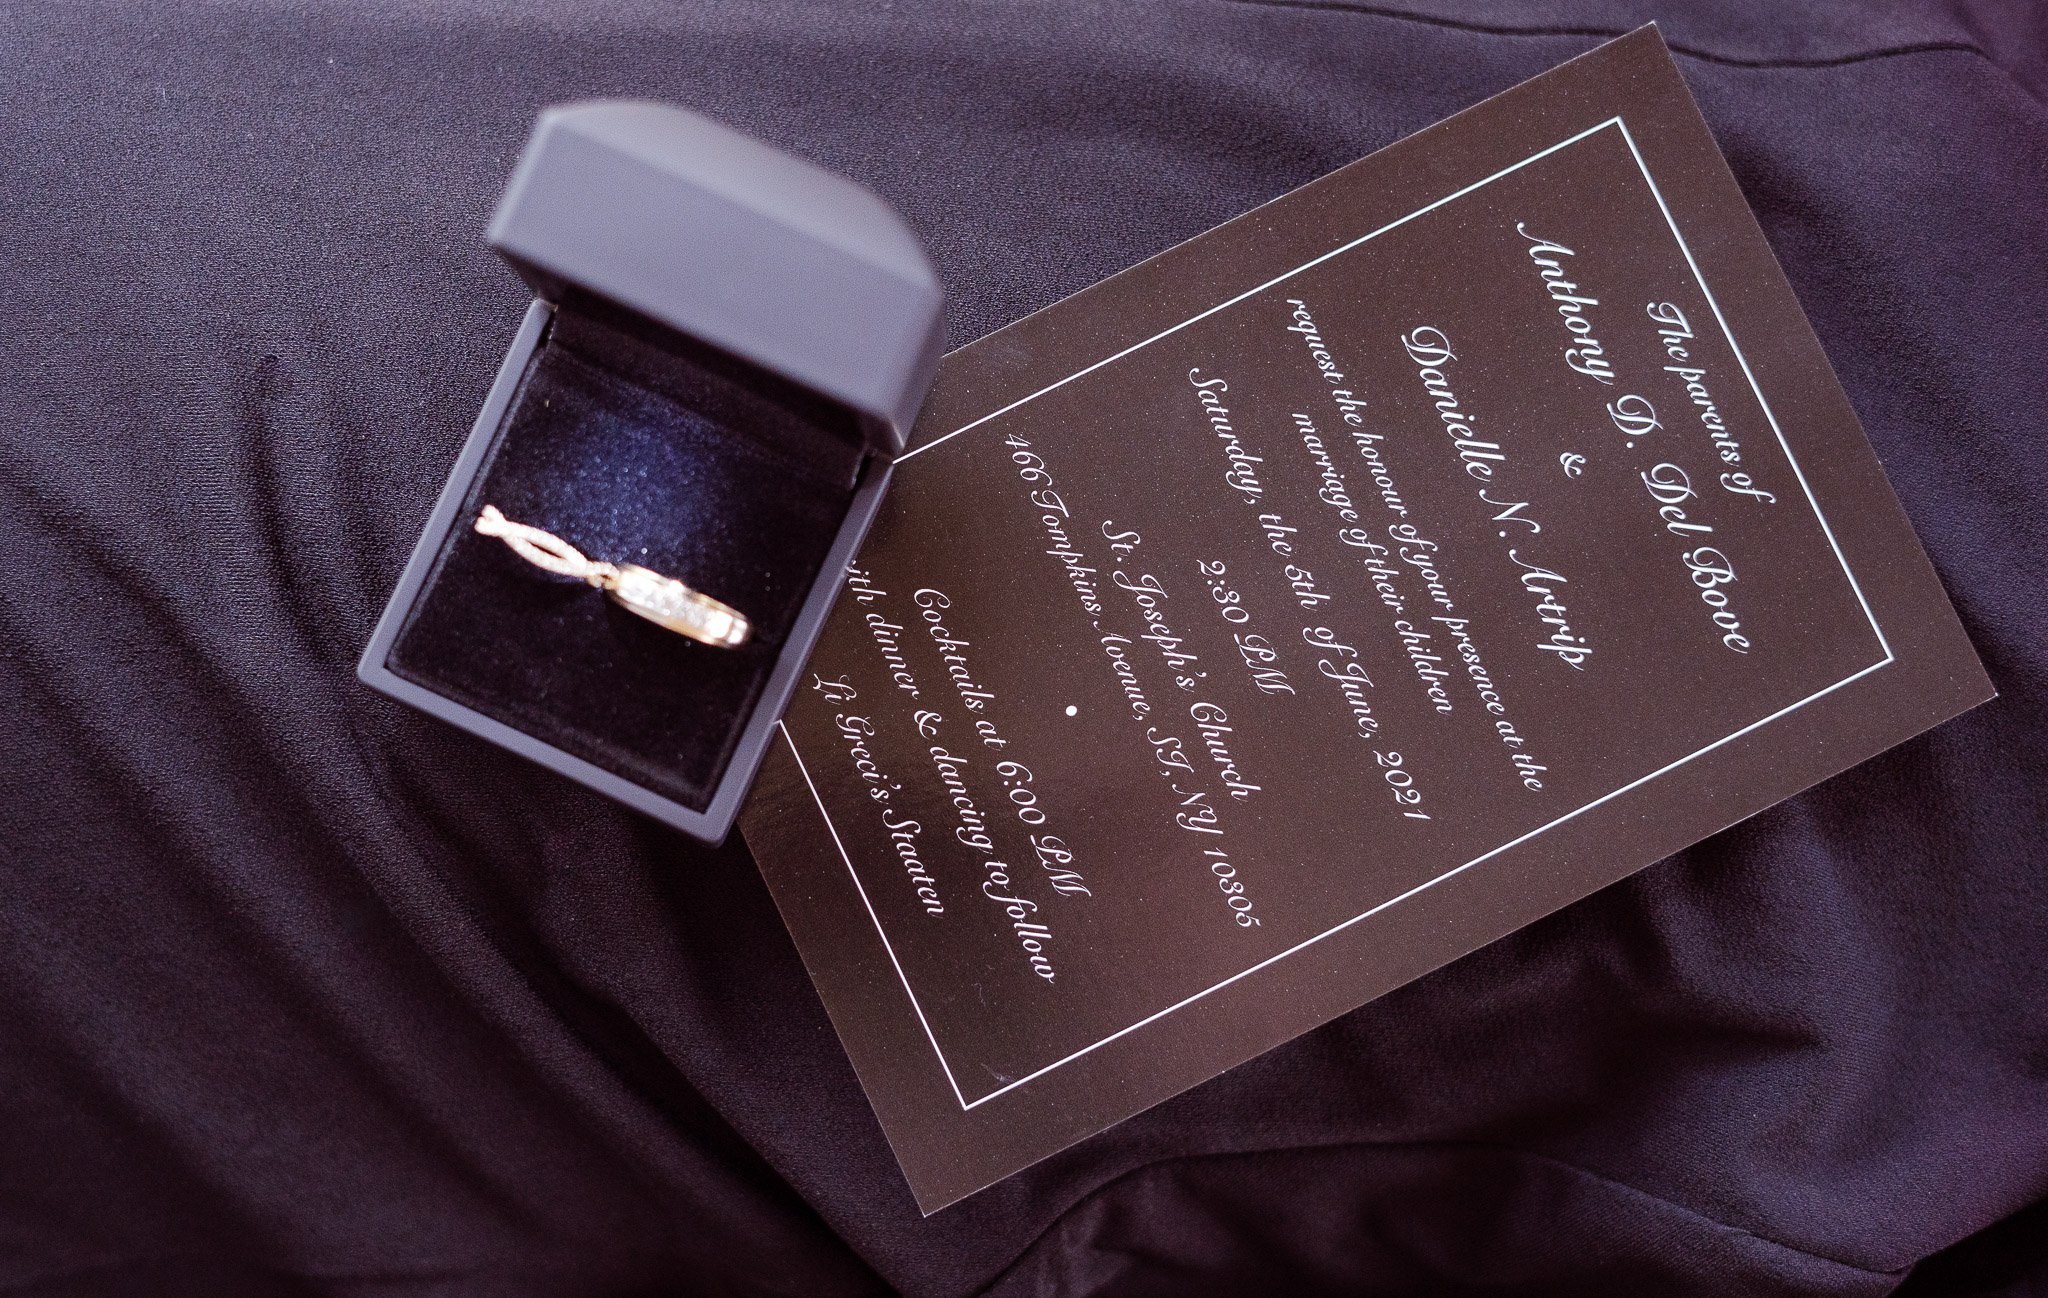 The parents of
Anthony D. Del Bove
&
Danielle N. Artrip
request the honour of your presence at the
marriage of their children
Saturday, the 5th of June, 2021
2:30 PM
St. Joseph's Church
466 Tompkins Avenue, SI, NY 10305
Cocktails at 6:00 PM
dinner & dancing to follow
Li Greci's Staaten